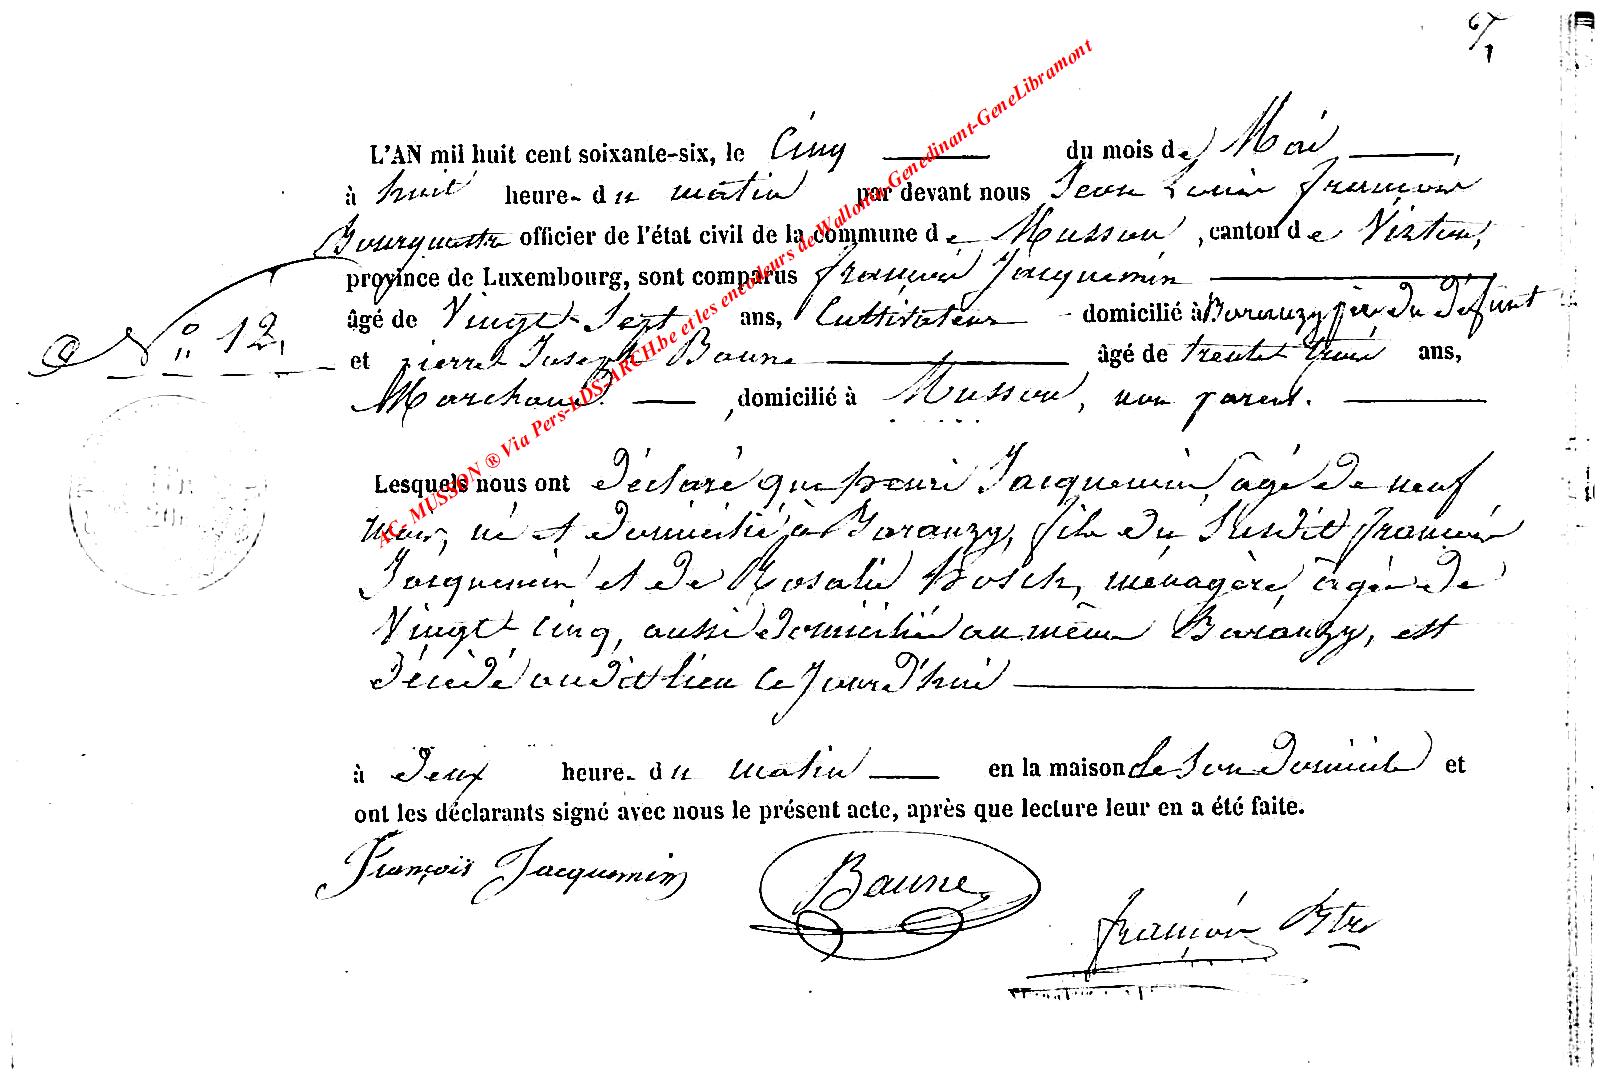 6/1
L'AN mil huit cent soixante-six, le Cinq du mois de Mai,
à huit heure- du matin par devant nous Jean Louis françois
Bourguestre officier de l'état civil de la commune de Musson, canton de Virton,
province de Luxembourg, sont comparus françois Jacquemin
âgé de Vingt-Sept ans, Cultivateur domicilié à Baranzy père du défunt
N° 12,
et pierre Joseph Baune âgé de trente trois ans,
Marchand, domicilié à Musson, non parent.
Lesquels nous ont déclaré que henri Jacquemin, âgé de neuf
mois, né et domicilié à Baranzy, fils du Susdit françois
Jacquemin et de Rosalie Bosch, ménagère, âgée de
Vingt cinq, aussi domiciliée au même Baranzy, est
décédé audit lieu ce jourd'hui
à deux heure- du matin en la maison de Son domicile et
ont les déclarants signé avec nous le présent acte, après que lecture leur en a été faite.
François Jacquemin
Baune
françois Btre
AC- MUSSON ® Via Pers-LDS-ARCH.be et les encodeurs de Wallonia-Genedinant-GeneLibramont